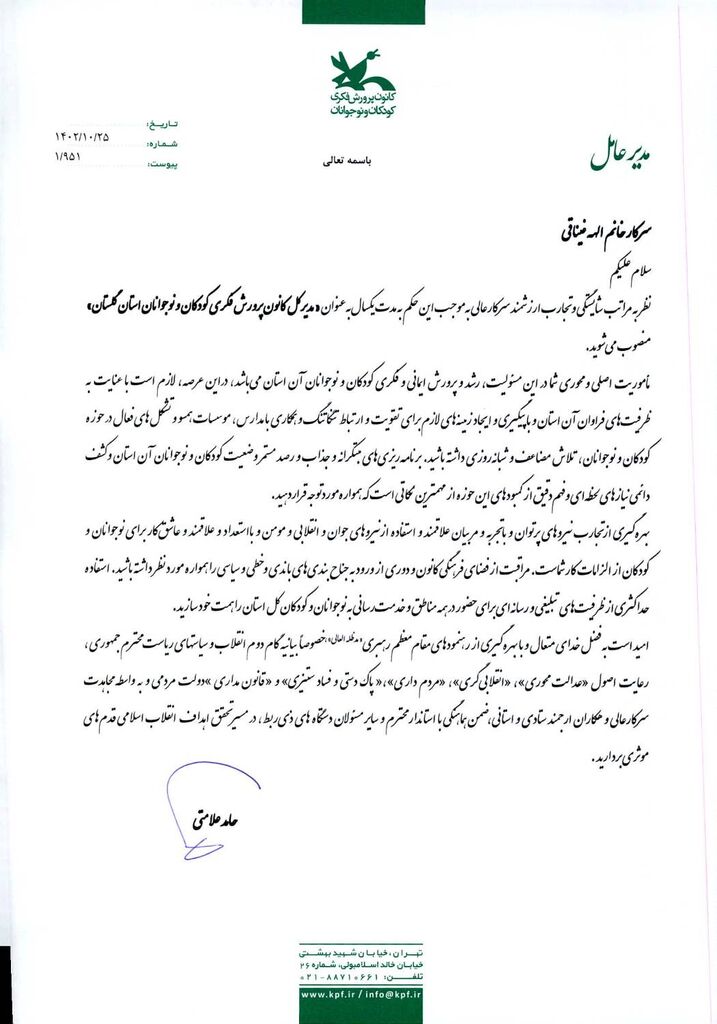 کانون پرورش فکری
کودکان و نوجوانان
تاریخ:
۱۴۰۲/۱۰/۲۵
شماره:
۱/۹۵۱
پیوست:
باسمه تعالی
مدیر عامل
سرکار خانم الهه فیناقی
سلام علیکم
نظر به مراتب شایستگی و تجارب ارزشمند سرکارعالی به موجب این حکم به مدت یکسال به عنوان «مدیرکل کانون پرورش فکری کودکان و نوجوانان استان گلستان»
منصوب می‌شوید.
مأموریت اصلی و محوری شما در این مسئولیت، رشد و پرورش ایمانی و فکری کودکان و نوجوانان آن استان می‌باشد، در این عرصه، لازم است با عنایت به
ظرفیت‌های فراوان آن استان و با پیگیری و ایجاد زمینه‌های لازم برای تقویت و ارتباط تنگاتنگ و همکاری با مدارس، موسسات همسو و تشکل‌های فعال در حوزه
کودکان و نوجوانان، تلاش مضاعف و شبانه روزی داشته باشید. برنامه ریزی‌های مبتکرانه و جذاب و رصد مستمر وضعیت کودکان و نوجوانان آن استان و کشف
دائمی نیازهای لحظه‌ای و فهم دقیق از کمبودهای این حوزه از مهمترین نکاتی است که همواره مورد توجه قرار دهید.
بهره گیری از تجارب نیروهای پرتوان و باتجربه و مربیان علاقمند و استفاده از نیروهای جوان و انقلابی و مومن و بااستعداد و علاقمند و عاشق کار برای نوجوانان و
کودکان از الزامات کار شماست. مراقبت از فضای فرهنگی کانون و دوری از ورود به جناح بندی‌های باندی و خطی و سیاسی را همواره مورد نظر داشته باشید. استفاده
حداکثری از ظرفیت‌های تبلیغی و رسانه‌ای برای حضور در همه مناطق و خدمت رسانی به نوجوانان و کودکان کل استان را همت خود سازید.
امید است به فضل خدای متعال و با بهره گیری از رهنمودهای مقام معظم رهبری«مدظله العالی»،خصوصاً بیانیه گام دوم انقلاب و سیاستهای ریاست محترم جمهوری،
رعایت اصول «عدالت محوری»، «انقلابی گری»، «مردم داری»،« پاک دستی و فساد ستیزی» و «قانون مداری »دولت مردمی و به واسطه مجاهدت
سرکارعالی و همکاران ارجمند ستادی و استانی،ضمن هماهنگی با استاندار محترم و سایر مسئولان دستگاه های ذی ربط، در مسیر تحقق اهداف انقلاب اسلامی قدم های
موثری بردارید.
حامد علامتی
تهران، خیابان شهید بهشتی
خیابان خالد اسلامبولی، شماره ۲۶
تلفن: ۰۲۱-۸۸۷۱۰۶۶۱
www.kpf.ir / info@kpf.ir